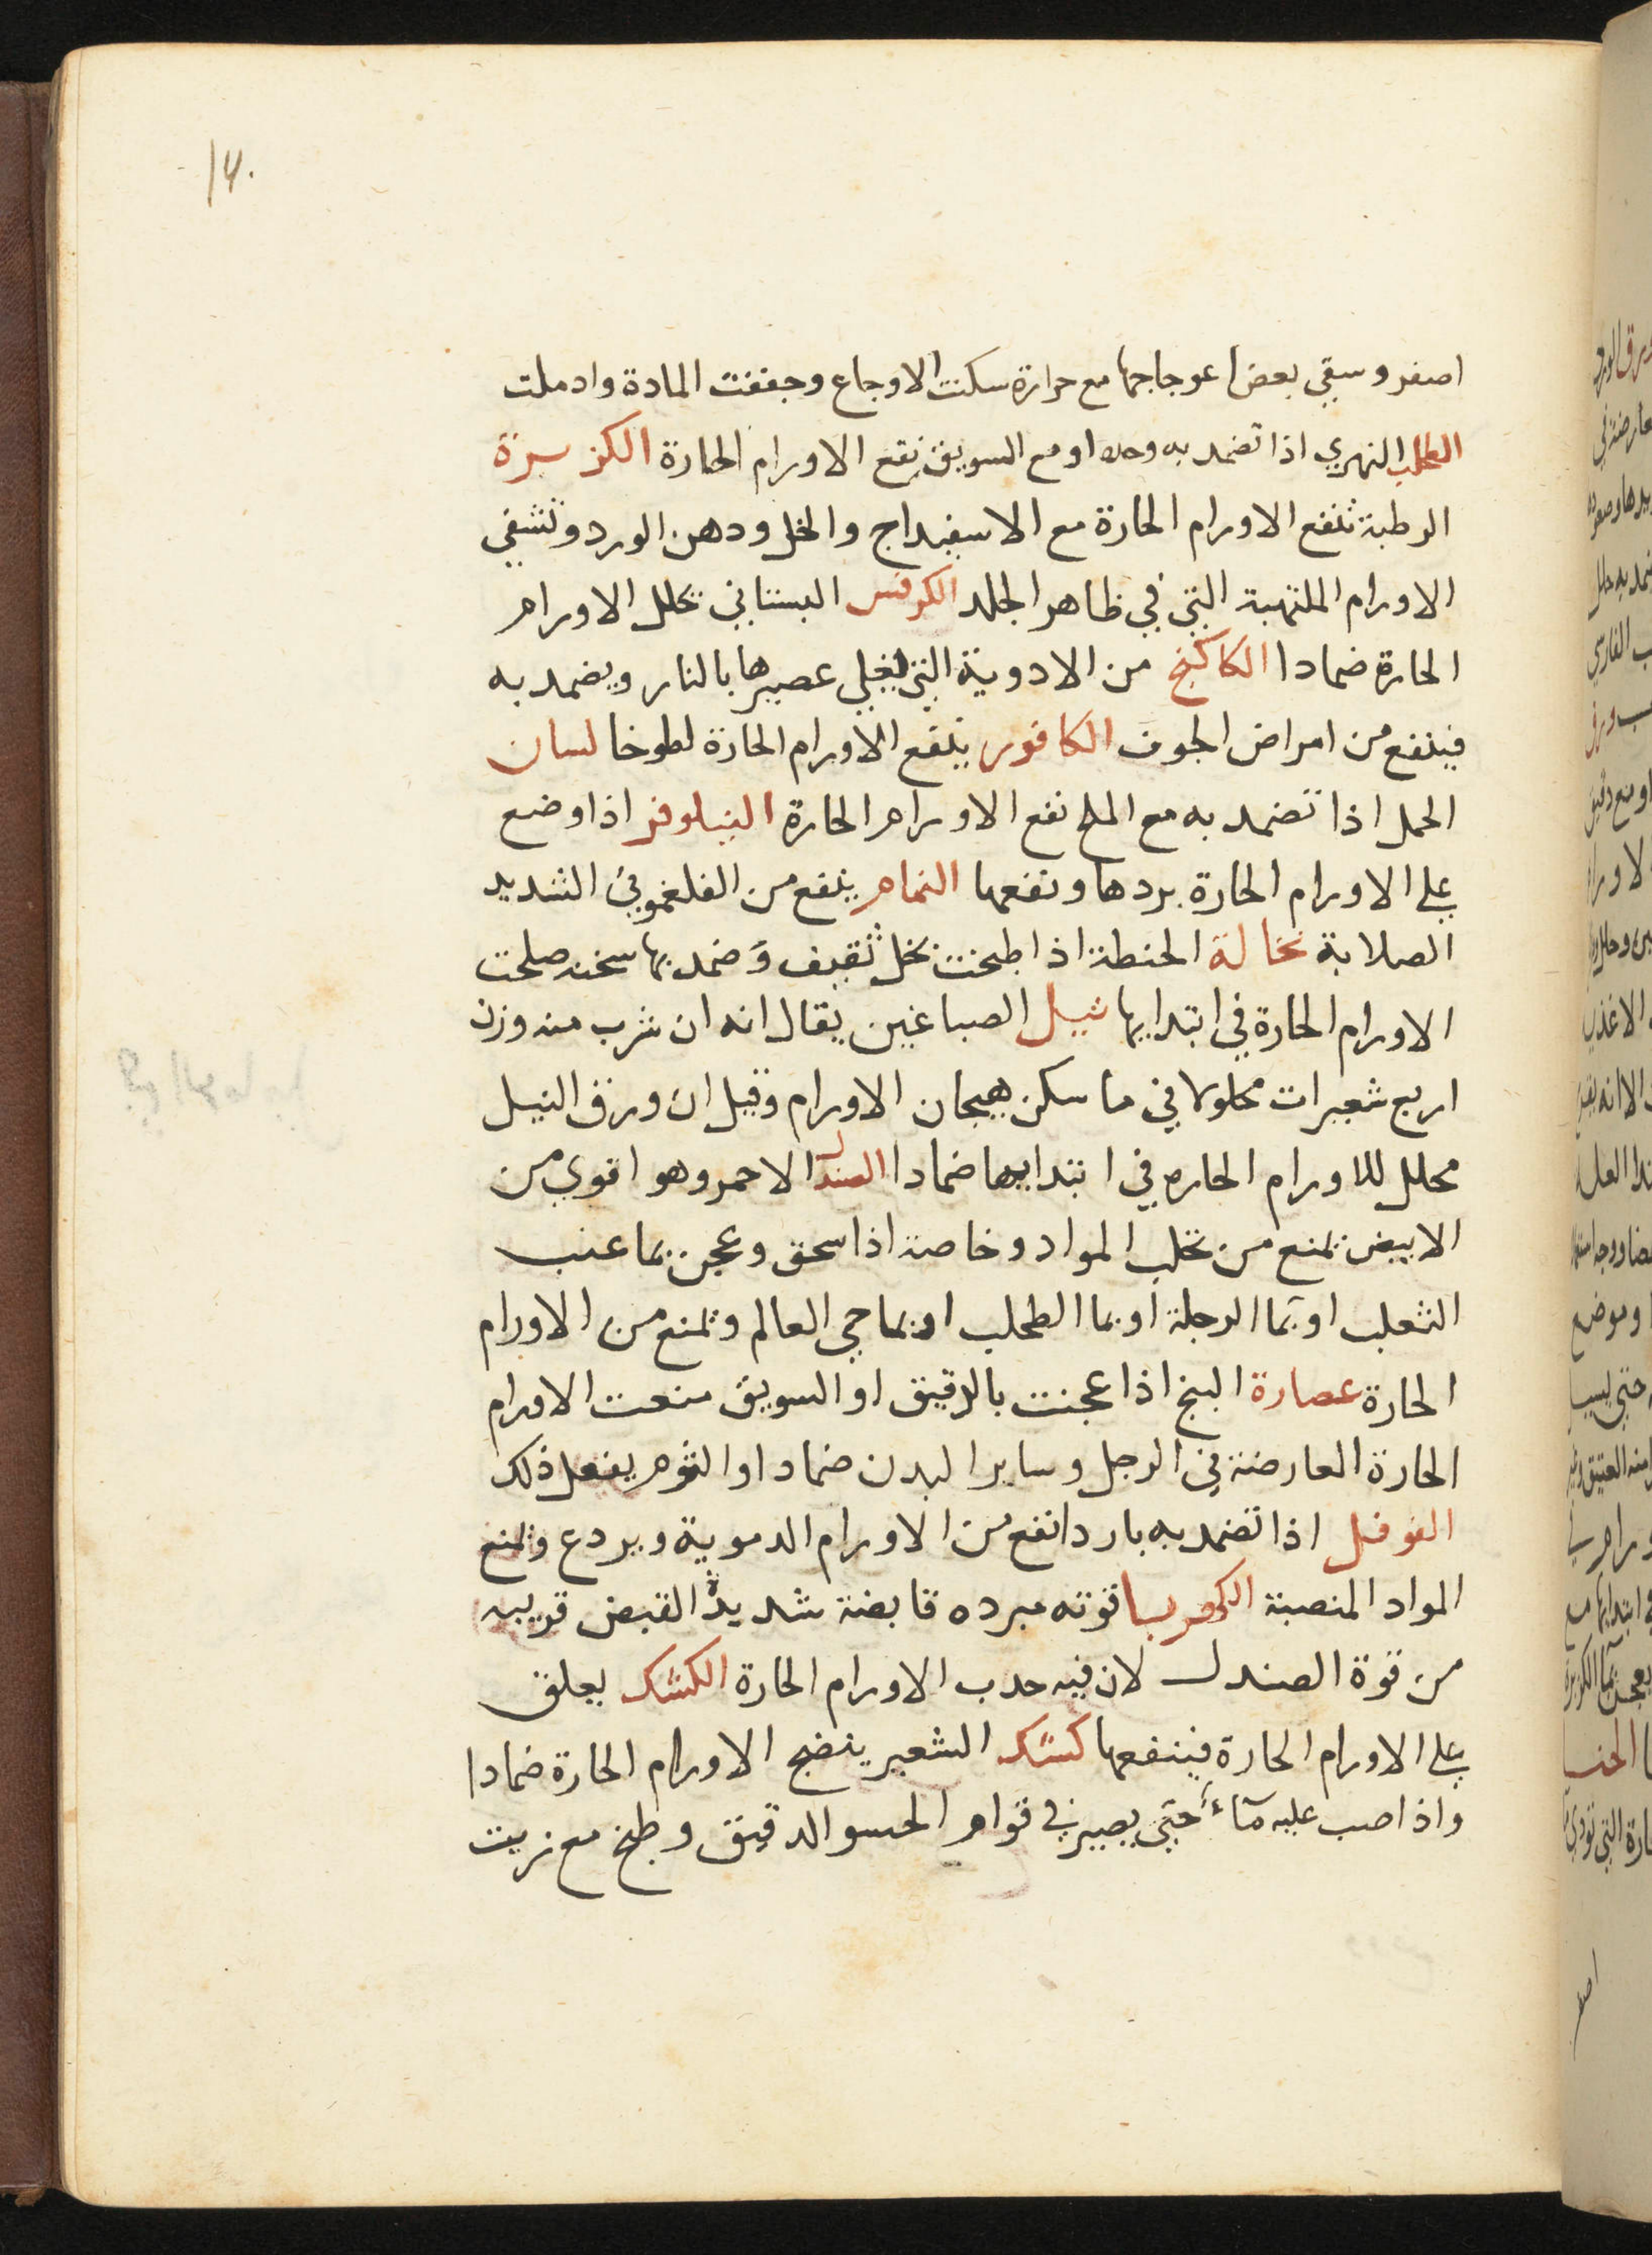 14.
اصفر وسقي بعض اعوجاجها مع حرارة سكنت الاوجاع وجففت المادة وادملت
الطحلب النهري اذا تضمد به وحده او مع السويق نفع الاورام الحارة الكزبرة
الرطبة تنفع الاورام الحارة مع الاسفيداج والخل ودهن الورد وتشفي
الاورام الملتهبة التي في ظاهر الجلد الكرفس البستاني يحلل الاورام
الحارة ضمادا الكاكنج من الادوية التي يغلي عصيرها بالنار ويضمد به
فينفع من امراض الجوف الكافور ينفع الاورام الحارة لطوخا لسان
الحمل اذا تضمد به مع الملح نفع الاورام الحارة النيلوفر اذا وضع
علي الاورام الحارة بردها ونفعها النمام ينفع من الفلغموني الشديد
الصلابة نخالة الحنطة اذا طبخت بخل ثقيف وضمد بها سخنه صلحت
الاورام الحارة في ابتدايها نيل الصباغين يقال انه ان شرب منه وزن
اربع شعيرات محلولا في ما سكن هيجان الاورام وقيل ان ورق النيل
محلل للاورام الحاره في ابتدايها ضمادا الصندل الاحمر وهو اقوي من
الابيض يمنع من تحلب المواد وخاصة اذا سحق وعجن بما عنب
الثعلب او بما الرجلة او بما الطحلب او بما حي العالم ويمنع من الاورام
الحارة عصارة البنج اذا عجنت بالدقيق او السويق منعت الاورام
الحارة العارضة في الرجل وساير البدن ضمادا والثوم يفعل ذلك
الفوفل اذا تضمد به باردا نفع من الاورام الدموية ويردع ويمنع
المواد المنصبة الكهربا قوته مبرده قابضة شديدة القبض قريبه
من قوة الصندل لان فيه جدب الاورام الحارة الكشك يعلق
علي الاورام الحارة فينفعها كشك الشعير ينضج الاورام الحارة ضمادا
واذا صب عليه ماء حتي يصير في قوام الحسو الدقيق وطبخ مع زيت